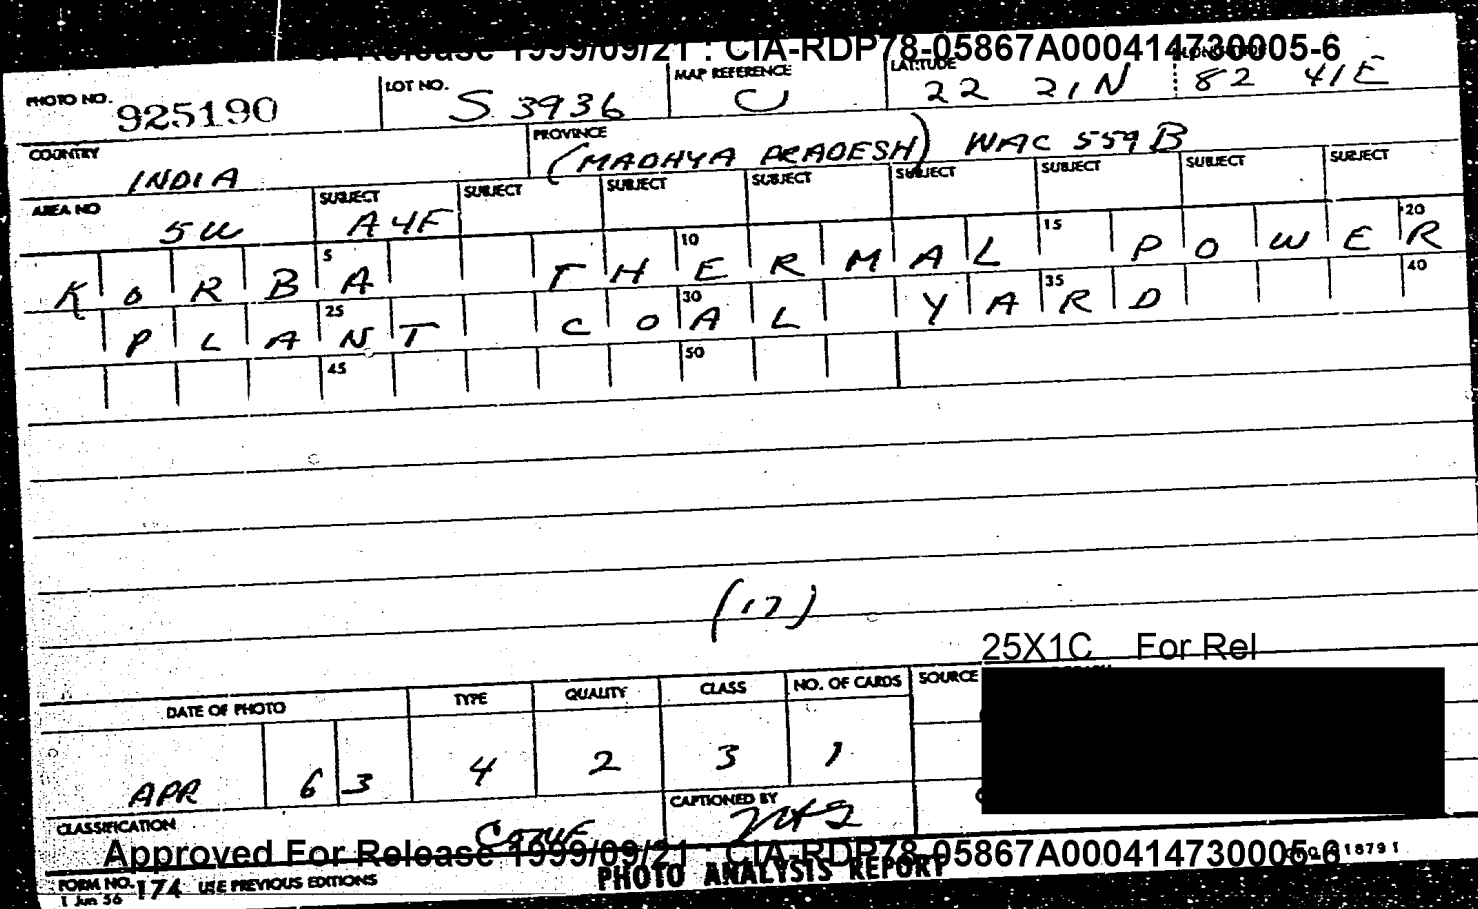 Release 1999/09/21 : CIA-RDP78-05867A000414730005-6
PHOTO NO. 925190 LOT NO. S 3936 MAP REFERENCE U LATITUDE 22 21N 82 41E
COUNTRY INDIA PROVINCE (MADHYA PRADESH) WAC 559B
AREA NO 5W SUBJECT A4F SUBJECT SUBJECT SUBJECT SUBJECT SUBJECT SUBJECT SUBJECT
5 10 15 20
KORBA THERMAL POWER
25 30 35 40
PLANT COAL YARD
45 50
(17)
25X1C For Rel
DATE OF PHOTO TYPE QUALITY CLASS NO. OF CARDS SOURCE
APR 63 4 2 3 1
CLASSIFICATION CAPTIONED BY
Approved For Release 1999/09/21 : CIA-RDP78-05867A000414730005-6
FORM NO. 174 USE PREVIOUS EDITIONS PHOTO ANALYSIS REPORT
1 Jun 56